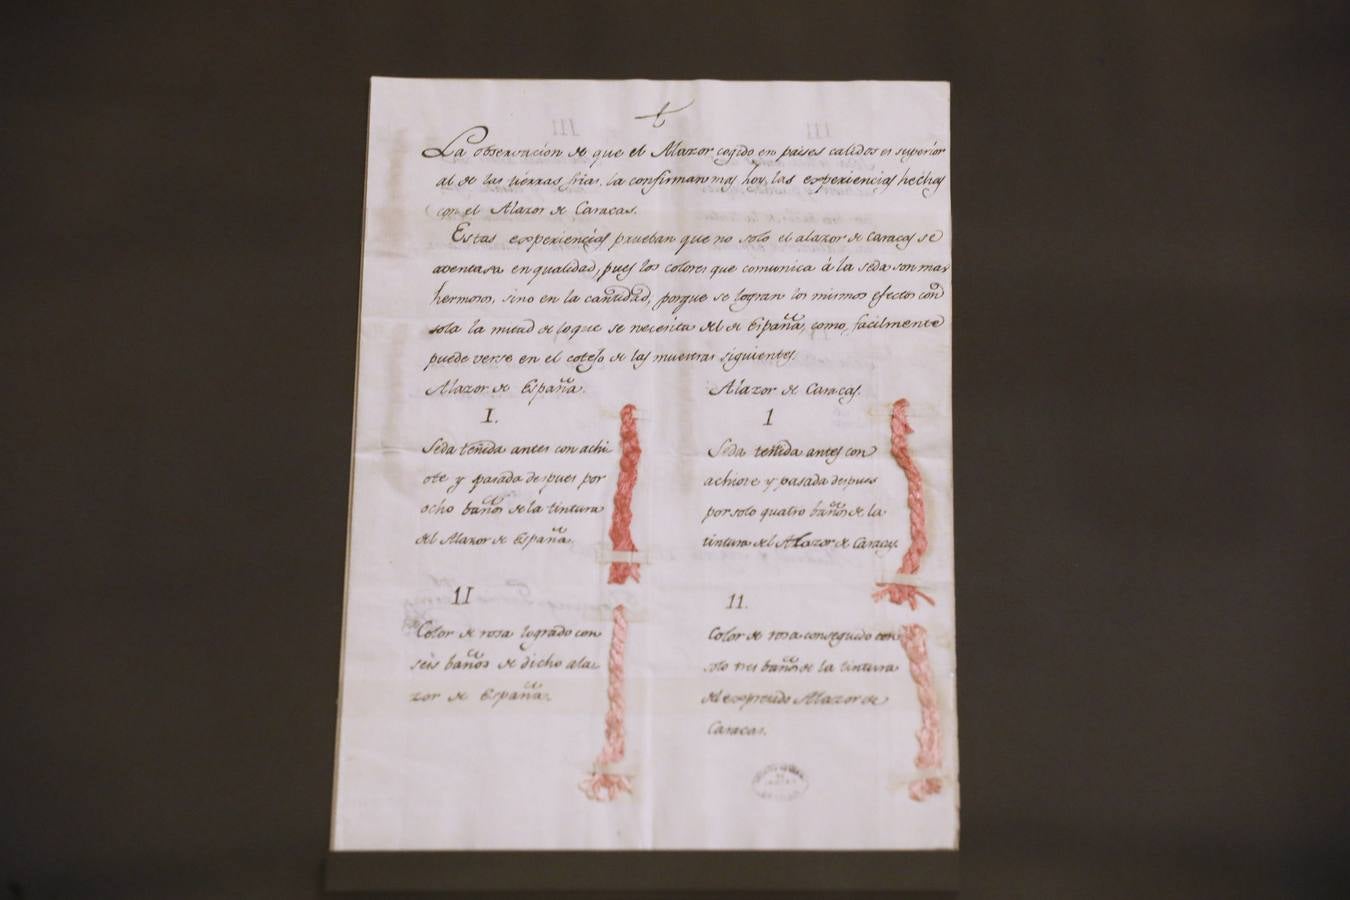 La observacion de que el Alazor cogido en paises calidos es superior
al de las tierras frias, la confirman mas hoy, las experiencias hechas
con el Alazor de Caracas.
Estas experiencias prueban que no solo el alazor de Caracas se
aventaxa en qualidad, pues los colores que comunica â la seda son mas
hermosos, sino en la cantidad, porque se logran los mismos efectos con
sola la mitad de loque se necesita del de España, como facilmente
puede verse en el cotejo de las muestras siguientes.
Alazor de España.
Alazor de Caracas.
I.
Seda teñida antes con achi
ote y pasada despues por
ocho baños de la tintura
del Alazor de España.
1
Seda teñida antes con
achiote y pasada despues
por solo quatro baños de la
tintura del Alazor de Caracas.
II
Color de rosa logrado con
seis baños de dicho ala
zor de España.
11.
Color de rosa conseguido con
solo tres baños de la tintura
del expresado Alazor de
Caracas.